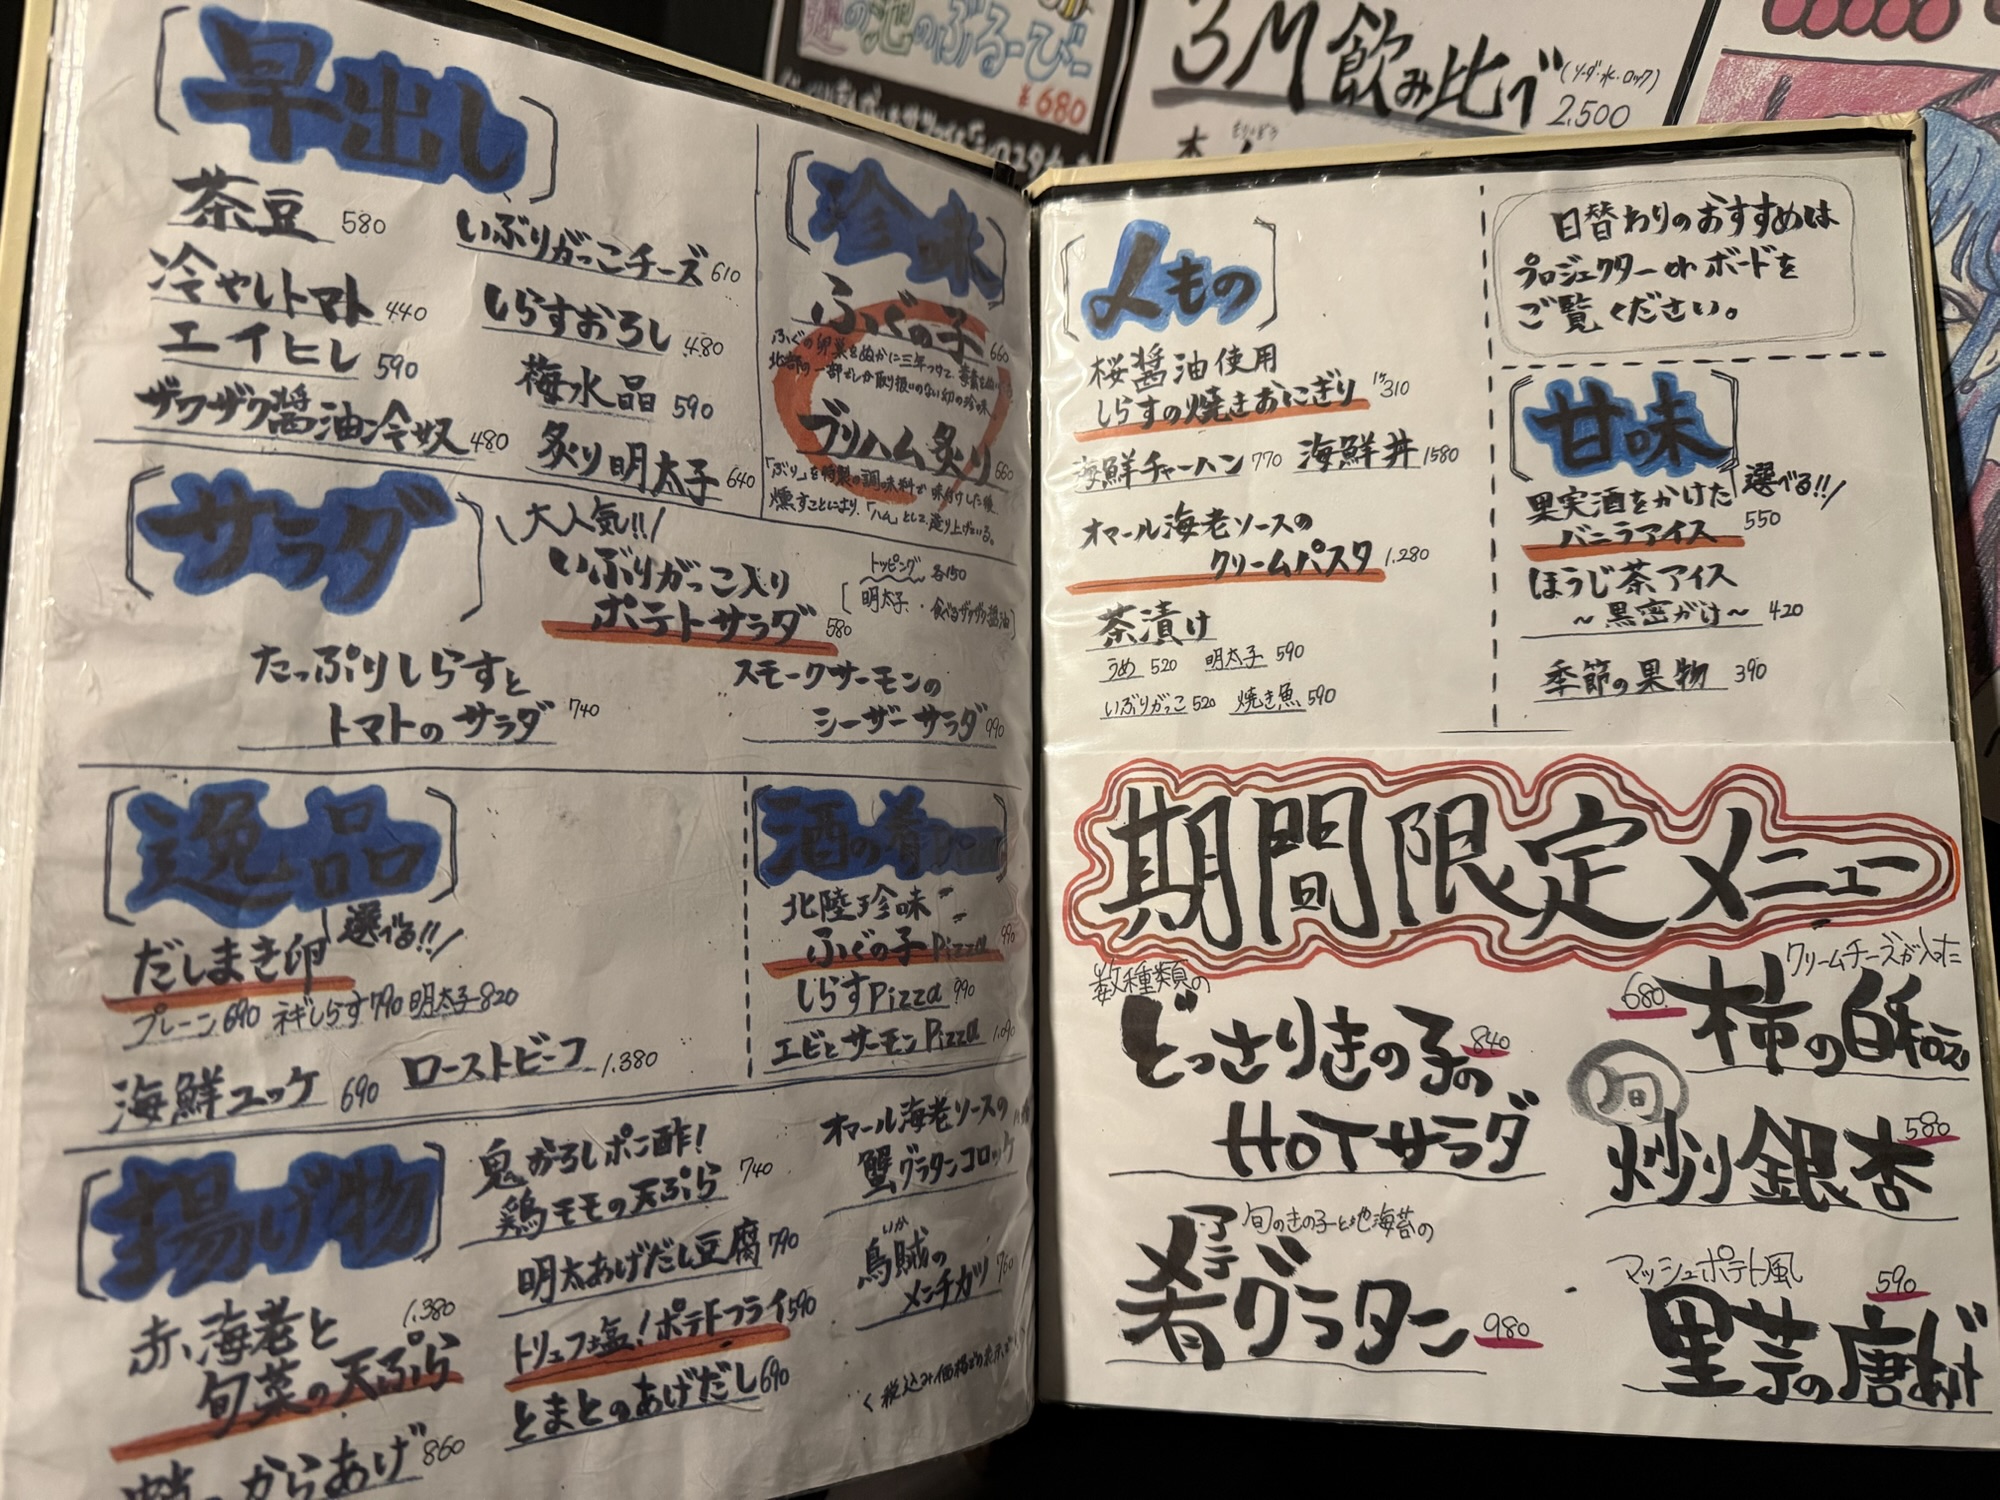 の池のぶるーびー
¥680
3M飲み比べ(ソーダ・水・ロック)
2,500
早出し
茶豆 580
冷やしトマト 440
エイヒレ 590
ザクザク醤油冷奴 480
いぶりがっこチーズ 610
しらすおろし 480
梅水晶 590
炙り明太子 640
珍味
ふぐの子 660
ふぐの卵巣をぬかに三年つけて、毒素を
北陸の一部でしか取り扱いのない幻の珍味
ブリハム炙り 660
「ぶり」を特製の調味料で味付けした後
燻すことにより、「ハム」として造り上げている。
サラダ
大人気!!
いぶりがっこ入り
ポテトサラダ 580
トッピング 各150
明太子・食べるザクザク醤油
たっぷりしらすと
トマトのサラダ 740
スモークサーモンの
シーザーサラダ 990
逸品
だしまき卵 選べる!!
プレーン 690 ネギしらす 790 明太子 820
海鮮ユッケ 690
ローストビーフ 1.380
酒の肴
北陸珍味
ふぐの子Pizza 990
しらすPizza 990
エビとサーモンPizza 1.090
揚げ物
赤海老と 1.380
旬菜の天ぷら
からあげ 860
鬼おろしポン酢!
鶏モモの天ぷら 740
明太あげだし豆腐 790
トリュフ塩!ポテトフライ 590
とまとのあげだし 690
オマール海老ソースの
蟹グラタンコロッケ
いか
烏賊の
メンチカツ 760
〆もの
桜醤油使用
しらすの焼きおにぎり 1ヶ310
海鮮チャーハン 770 海鮮丼 1580
オマール海老ソースの
クリームパスタ 1.280
茶漬け
うめ 520 明太子 590
いぶりがっこ 520 焼き魚 590
日替わりのおすすめは
プロジェクター or ボードを
ご覧ください。
甘味
選べる!!
果実酒をかけた
バニラアイス 550
ほうじ茶アイス
~黒蜜がけ~ 420
季節の果物 390
期間限定メニュー
数種類の
どっさりきの子の 840
HOTサラダ
クリームチーズが入った
680 柿の白和
旬
炒り銀杏 580
旬のきの子と地海苔の
アテ
肴グラタン 980
マッシュポテト風
590
里芋の唐あげ